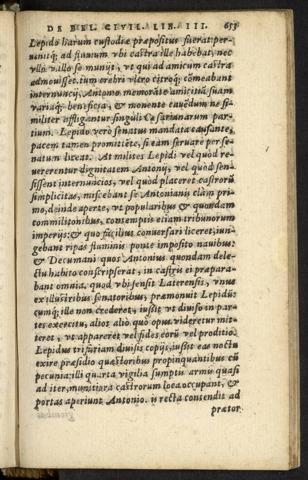 DE BEL. CIVIL. LIB. III. 653
Lepido harum custodiæ præpositus fuerat per-
uenitq; ad flumen vbi castra ille habebat, nec
vllo vallo se muniit, vt qui ad amicum castra
admouisset. ium crebri vltro citroq; cōmeabant
internuncij, Antonio memorāte amicitiā suam
variaq; beneficia, & monente cauēdum ne si-
militer affligantur singuli Cæsarianarum par-
tium. Lepido verò senatus mandata causante,
pacem tamen promittēte, si eam seruare per se-
natum liceat. At milites Lepidi vel quòd re-
uererentur dignitatem Antonij, vel quòd sen-
sissent internuncios, vel quòd placeret castrorū
simplicitas, miscebant se Antonianis clàm pri-
mo, deinde apertè, vt popularibus & quondam
commilitonibus, contemptis etiam tribunorum
imperijs: & quo facilius conuersari liceret, iun-
gebant ripas fluminis ponte imposito nauibus:
& Decumani quos Antonius quondam dele-
ctu habito conscripserat, in castris ei præpara-
bant omnia. quod vbi sensit Laterensis, vnus
ex illustribus senatoribus, præmonuit Lepidū:
cumq; ille non crederet, iussit vt diuiso in par-
tes exercitu, aliòs aliò quò opus videretur mit-
teret, vt appareret vel fides eorū vel proditio.
Lepidus trifariam diuisis copijs, iussit eas noctu
exire præsidio quæstoribus propinquantibus cū
pecunia. illi quarta vigilia sumptis armis quasi
ad iter, munitiora castrorum loca occupant, &
portas aperiunt Antonio. is recta contendit ad
prætor